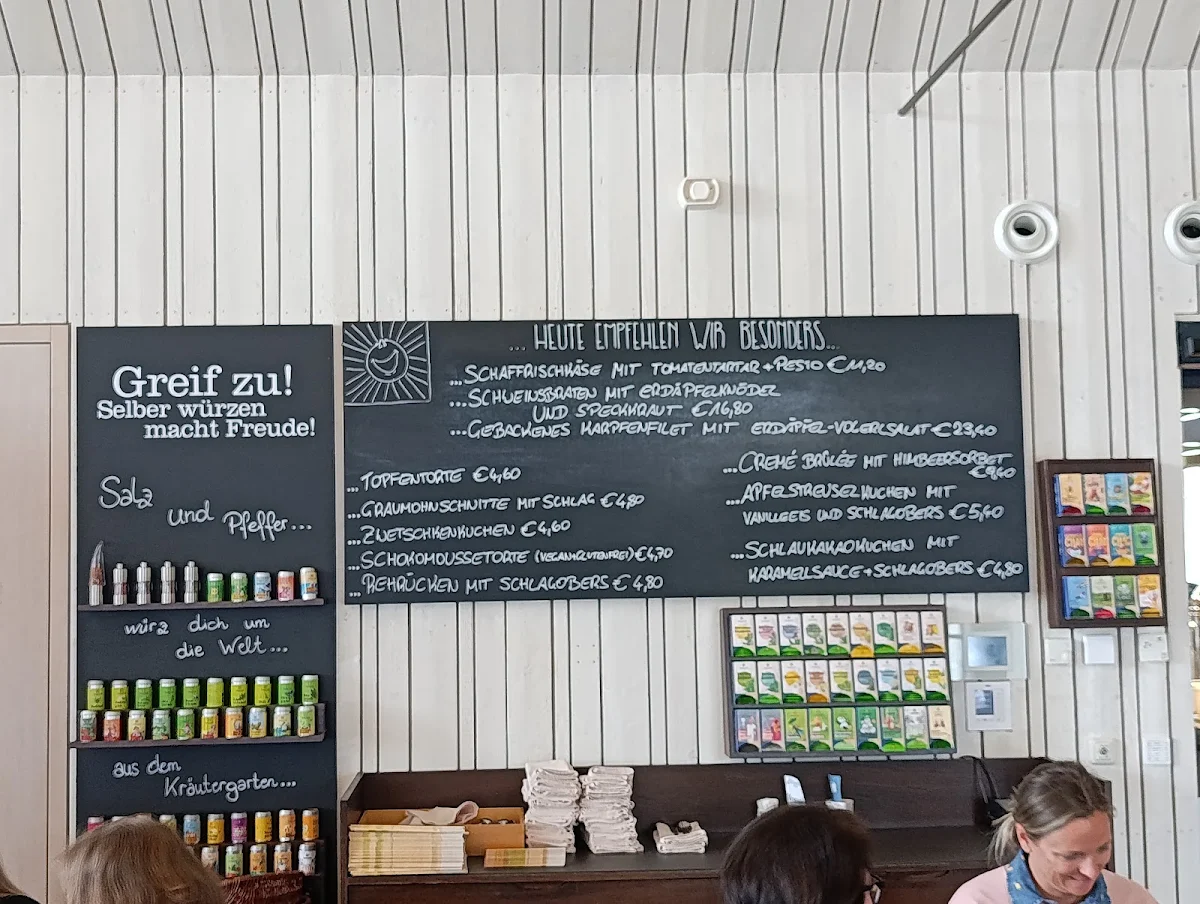 Greif zu!
Selber würzen
macht Freude!
Salz
und Pfeffer...
würz dich um
die Welt...
aus dem
Kräutergarten...
... HEUTE EMPFEHLEN WIR BESONDERS...
...SCHAFFRISCHKÄSE MIT TOMATENTARTAR + PESTO €11,20
...SCHWEINSBRATEN MIT ERDÄPFELKNÖDEL
UND SPECKKRAUT €16,80
...GEBACKENES KARPFENFILET MIT ERDÄPFEL-VOGERLSALAT €23,40
...TOPFENTORTE €4,60
...GRAUMOHNSCHNITTE MIT SCHLAG €4,80
...ZWETSCHKENKUCHEN €4,60
...SCHOKOMOUSSETORTE (VEGAN+GLUTENFREI) €4,70
...REHRÜCKEN MIT SCHLAGOBERS €4,80
...CREMÉ BRÛLÉE MIT HIMBEERSORBET
...APFELSTREUSELKUCHEN MIT
VANILLEEIS UND SCHLAGOBERS €5,40
...SCHLAUKAKAOKUCHEN MIT
KARAMELSAUCE + SCHLAGOBERS €4,80